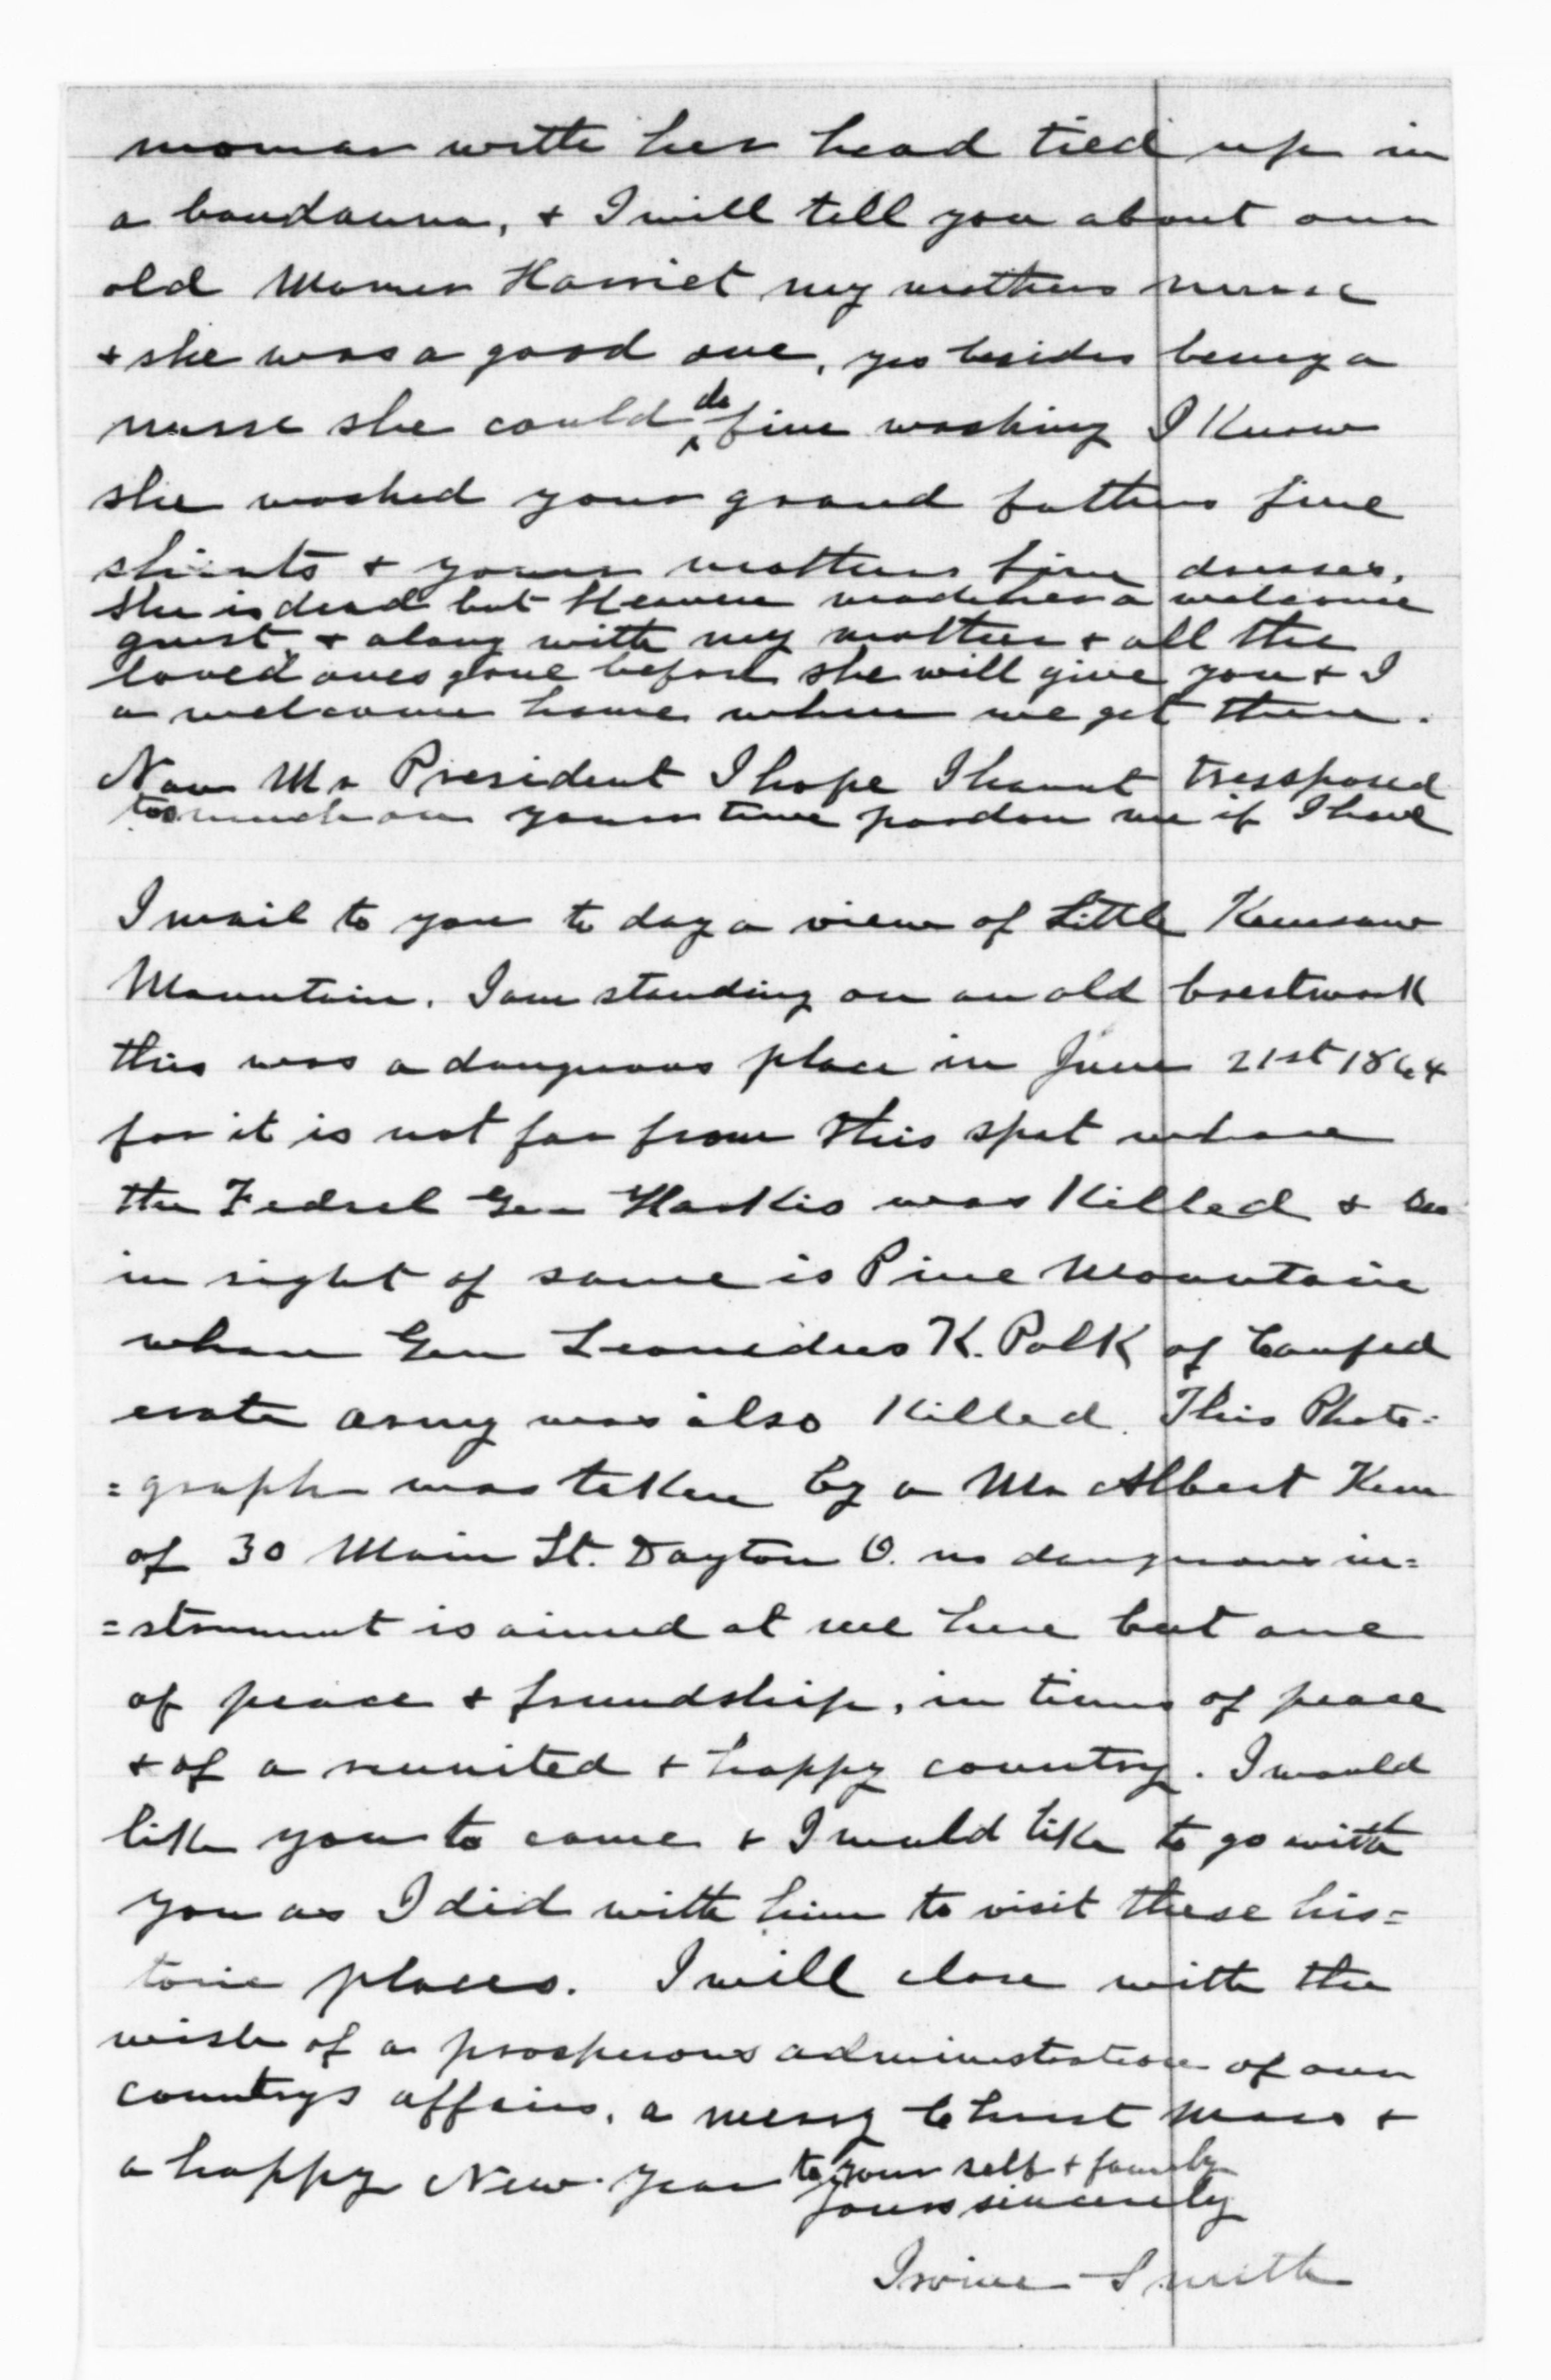 woman with her head tied up in
a bandanna, + I will tell you about our
old Mamer Harriet my mothers nurse
+ she was a good one, yes besides being a
nurse she could do fine washing I Know
she washed your grand fathers fine
shirts + your mothers fine dresses,
She is dead but Heaven made her a welcome
guest, + along with my mother + all the
loved ones gone before she will give you + I
a welcome home when we get there.
Now Mr President I hope I havnt tresspased
too much on your time pardon me if I have
I mail to you to day a view of Little Kenesaw
Mountain. I am standing on an old brestwork
this was a dangerous place in June 21st 1864
for it is not far from this spot where
the Fedrel Gen Harkis was Killed +
in sight of same is Pine Mountain
where Gen Leonidus K. Polk of Confed
erate army was also Killed. This Photo=
=graph was taken by a Mr Albert Kern
of 30 Main St. Dayton O. no dangerous in=
=strument is aimed at me here but one
of peace + friendship, in times of peace
+ of a reunited + happy country. I would
like you to come + I would like to go with
you as I did with him to visit these his=
toric places. I will close with the
wish of a prosperous administration of our
countrys affairs, a merry Christ mass +
a happy New Year to your self + family
yours sincerely
Irvine Smith